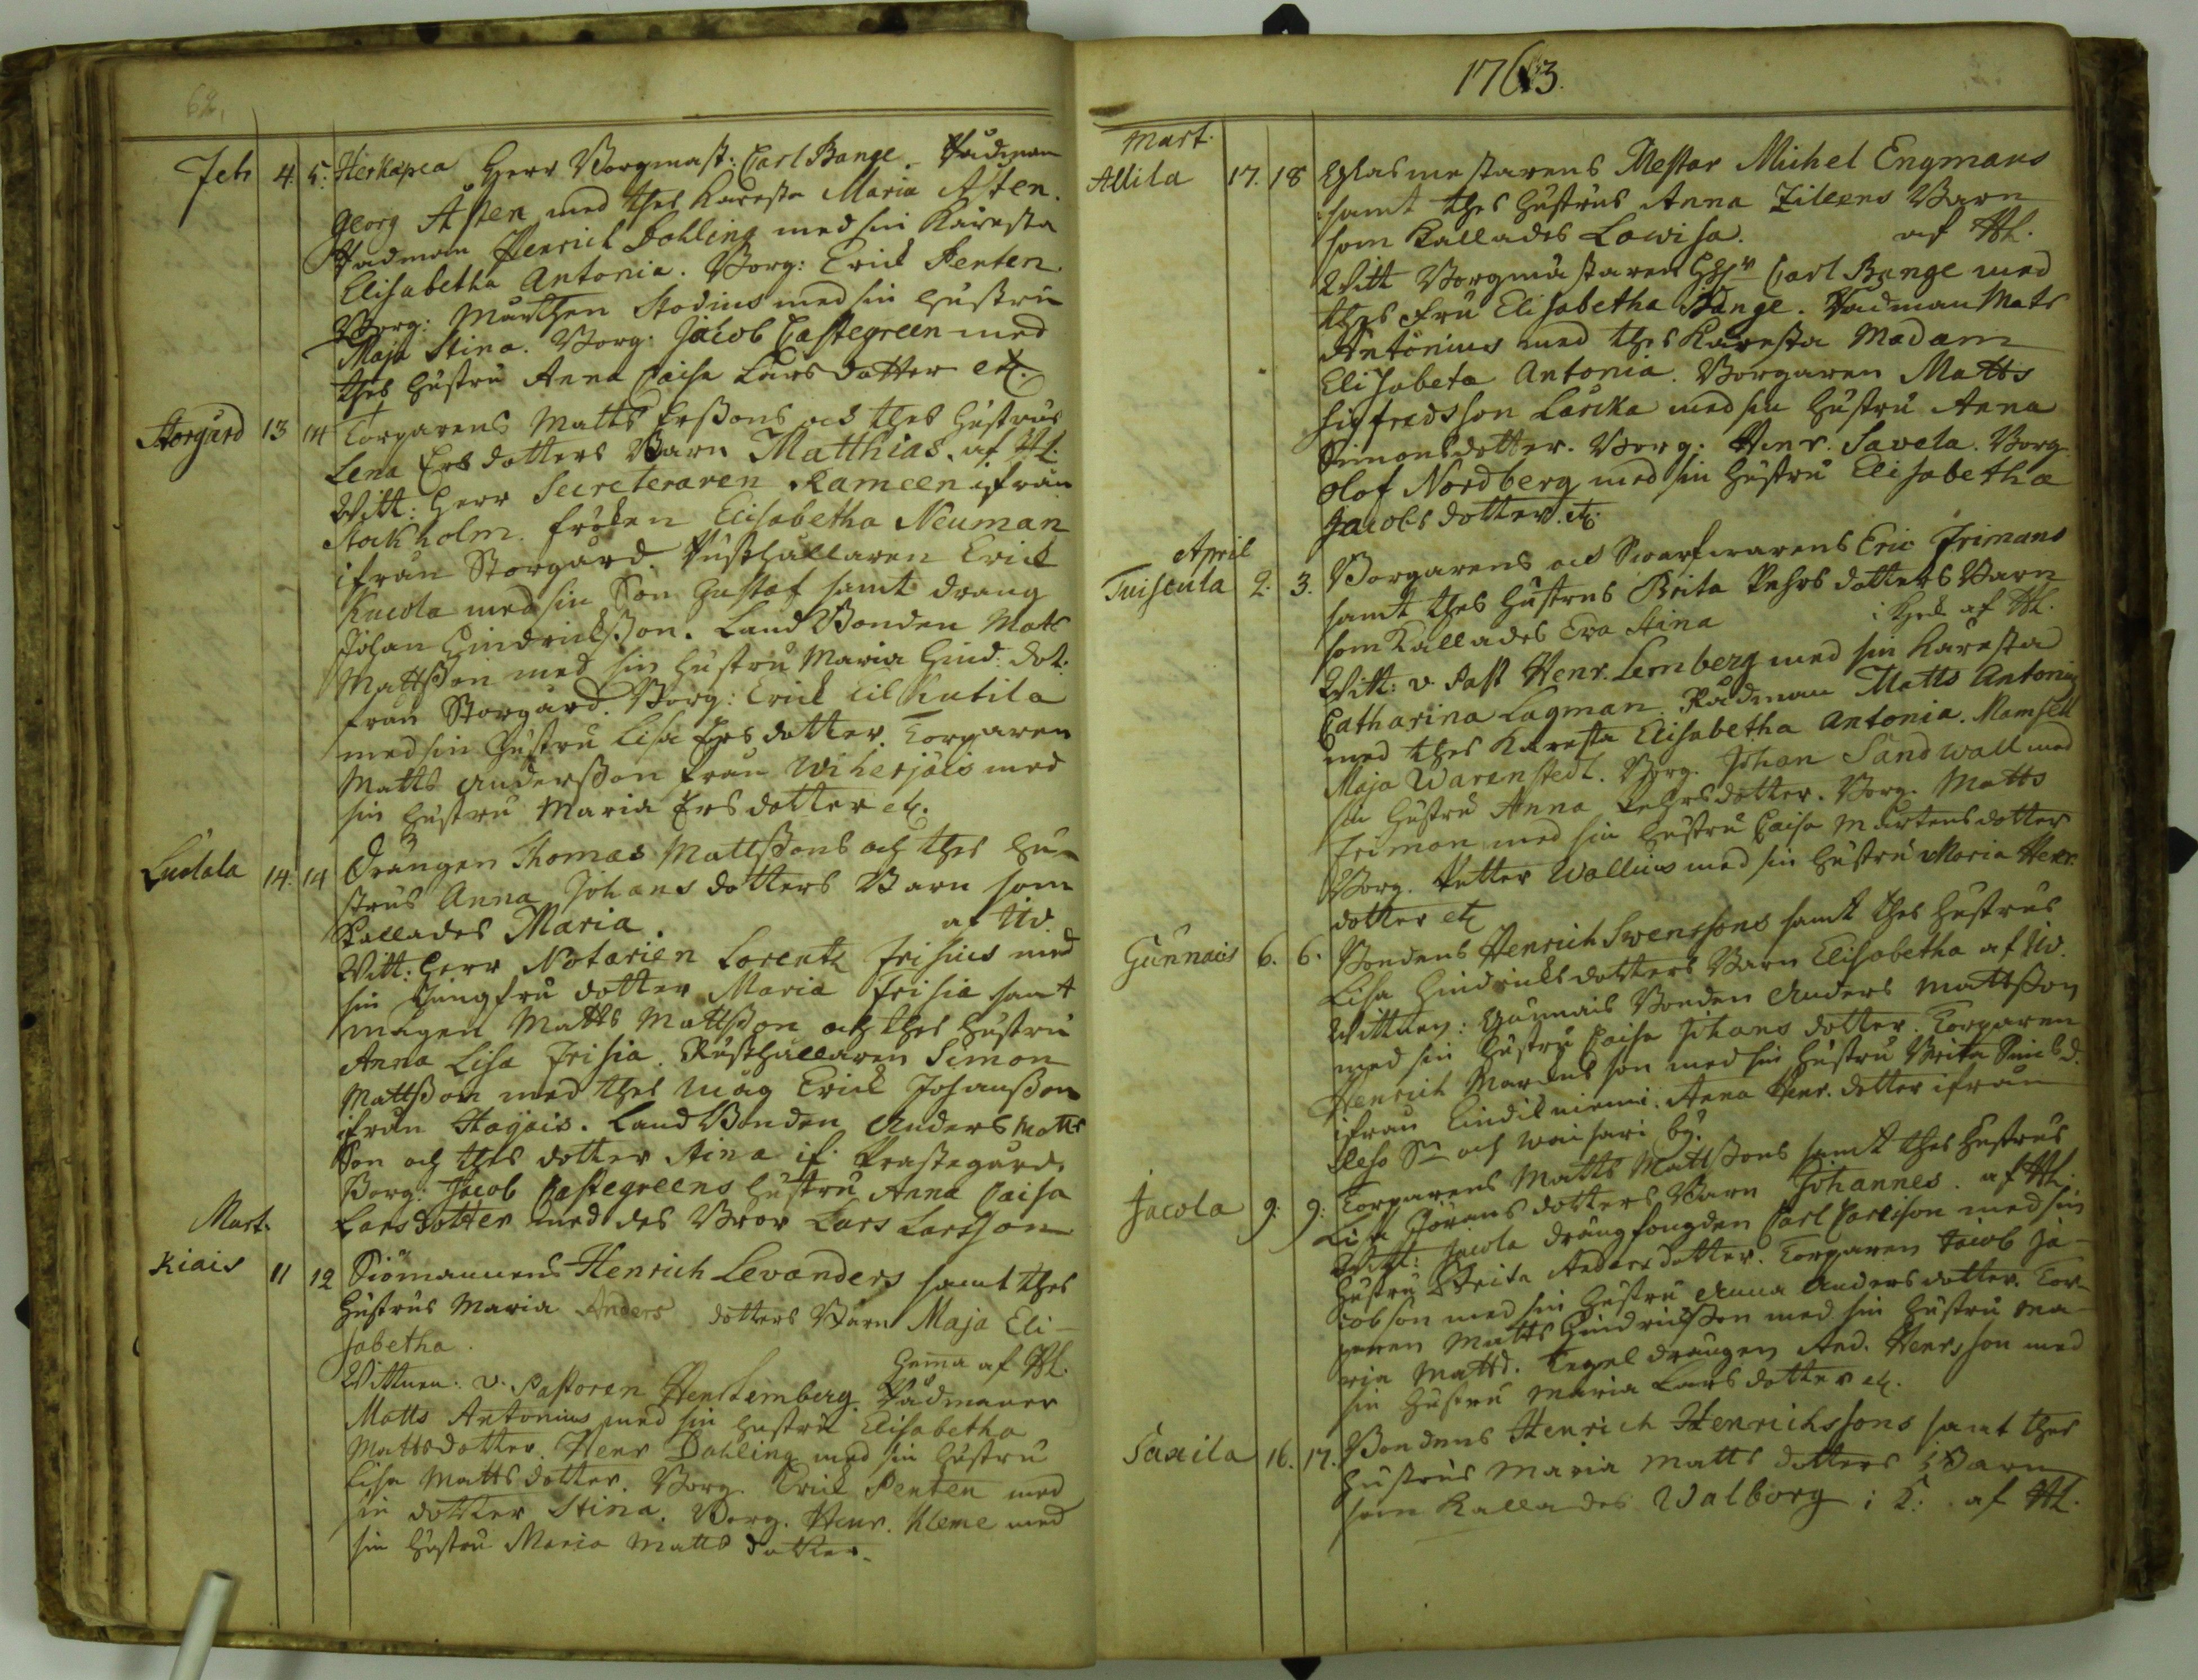 62,
Feb 4. 5. Herkäpea Herr Borgmast: Carl Bange. Rådman
Georg Åsten med thes Kåresta Maria Åsten.
Rådman Henrich Dahling med sin Käresta
Elisabetha Antonia. Borg: Erick Penten.
Borg: Mårthen Stodius med sin Hustru
Maja Stina. Borg: Jacob Castegreen med
thes Hustru Anna Caisa Larsdotter etc.
Storgård 13 14 Torparens Matts Erssons och thes Hustrus
Lena Ersdotters Barn Matthias. af Hl.
Witt: Herr Secreteraren Rameen ifrån
Stockholm. Fröken Elisabetha Neuman
ifrån Storgård. Rusthållaren Erick
Kucola med sin Son Gustaf samt dräng
Johan Hindricksson. Land Bonden Matts
Mattsson med sin Hustru Maria Hind: dot:
från Storgård. Borg: Erick Lill Kutila
med sin Hustru Lisa Ersdotter. Torparen
Matts Andersson från Wiherjäis med
sin Hustru Maria Ersdotter etc.
Ludala 14. 14 Drängen Thomas Mattssons och thes Hu-
strus Anna Johansdotters Barn som
kallades Maria. af Uv.
Witt: Herr Notarien Lorentz Frisius med
sin Jungfru dotter Maria Frisia samt
mågen Matts Mattsson och thes Hustru
Anna Lisa Frisia. Rusthållaren Simon
Mattsson med thes måg Erick Johansson
ifrån Stagais. Land Bonden Anders Matts
Son och thes dotter Stina if: Prästegård.
Borg: Jacob Castegreens Hustru Anna Caisa
Larsdotter med des Bror Lars Larsson
Mart.
Kiais 11 12 Siömannens Henrich Levanders samt thes
Hustrus Maria Anders dotters Barn Maja Eli-
sabetha.
Hema af Hl.
Wittnen: v. Pastoren Hen: Lemberg. Rådmaner
Matts Antonius med sin Hustru Elisabetha
Mattsdotter. Henr Dahling med sin Hustru
Lisa Mattsdotter. Borg. Erick Penten med
sin dotter Stina. Borg. Henr. Kleme med
sin Hustru Maria Mattsdotter.
1763.
Mart.
Allila 17. 18 Glasmestarens Mestar Michel Engmans
samt thes Hustrus Anna Zileens Barn
som kallades Lowisa. af Hl.
Witt Borgmästaren Carl Bange med
thes Fru Elisabetha Bånge. Rådman Matts
Antonius med thes Käresta Madam
Elisabeta Antonia. Borgaren Matts
Sigfredsson Larcka med sin Hustru Anna
Simonsdotter. Borg: Henr. Savela. Borg.
Olof Nordberg med sin Hustru Elisabetha
Jacobsdotter. etc.
April
Tuiscula 2. 3. Borgarens och Swarfwarens Eric Frimans
samt thes Hustrus Brita Pehrsdotters Barn
som kallades Eva Stina i Kyrk af Hl.
Witt: v. Past Henr. Lemberg med sin Käresta
Catharina Lagman. Rådman Matts Antonius
med thes Käresta Elisabetha Antonia. Mamsell
Maja Warenstedt. Borg. Johan Sandwall med
sin Hustru Anna Pehrsdotter. Borg. Matts
Friman med sin Hustru Caisa Mårtensdotter
Borg. Petter Wallius med sin Hustru Maria Henr.
dotter etc
Gunnais 6. 6. Bondens Henrich Swenssons samt thes Hustrus
Lisa Hindricksdotters Barn Elisabetha af Uv.
Wittnen: Gunnais Bonden Anders Mattsson
med sin Hustru Caisa Johansdotter. Torparen
Henrich Marckusson med sin Hustru Brita Sims d.
ifrån Lindilniemi. Anna Henr. dotter ifrån
och Waihari by.
Jacola 9. 9. Torparens Matts Mattssons samt thes Hustrus
Lisa Jöransdotters Barn Johannes. af Hl.
Witt: Jacola drängfougden Carl Carlsson med sin
Hustru Brita Andersdotter. Torparen Jacob Ja-
cobson med sin Hustru Anna Andersdotter. Tor-
paren Matts Hindricksson med sin Hustru Ma-
ria Mattsd. Tegel drängen And. Henrsson med
sin Hustru Maria Larsdotter etc.
Saxila 16. 17. Bondens Henrich Henrichssons samt thes
Hustrus Maria Mattsdotters Barn
som kallades Walborg i K. af Hl.